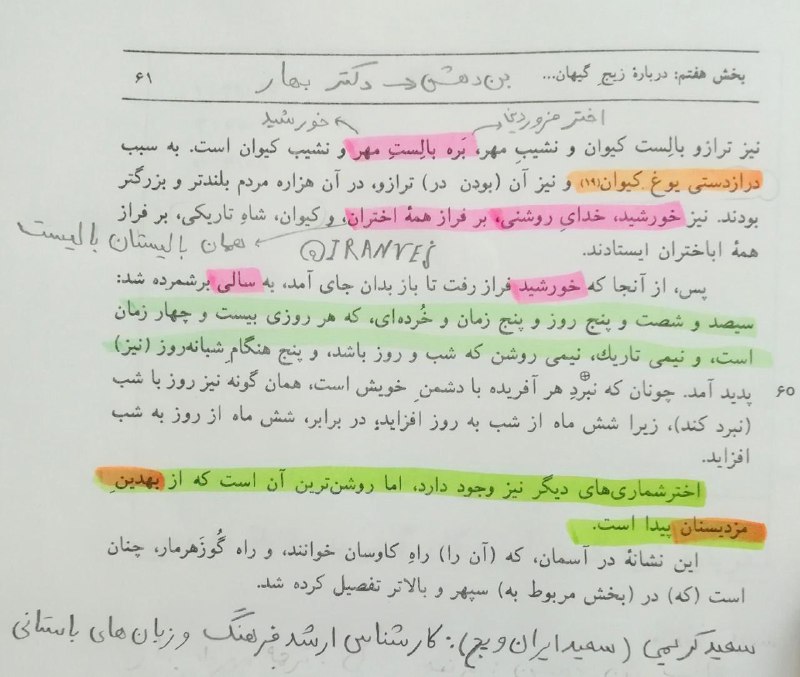 بخش هفتم: دربارهٔ زیج گیهان... بن دهشن دکتر بهار ۶۱
اختر فروردین خورشید
نیز ترازو بالِست کیوان و نشیبِ مهر، بَره بالِستِ مهر و نشیب کیوان است. به سبب
درازدستی یوغ کیوان(۱۹) و نیز آن (بودن در) ترازو، در آن هزاره مردم بلندتر و بزرگتر
بودند. نیز خورشید، خدایِ روشنی، بر فراز همهٔ اختران، و کیوان، شاهِ تاریکی، بر فراز
همهٔ اباختران ایستادند.
همان بالیستان بالیست
@IRANVEJ
پس، از آنجا که خورشید فراز رفت تا باز بدان جای آمد، به سالی برشمرده شد:
سیصد و شصت و پنج روز و پنج زمان و خُرده‌ای، که هر روزی بیست و چهار زمان
است، و نیمی تاریك، نیمی روشن که شب و روز باشد، و پنج هنگامِ شبانه‌روز (نیز)
پدید آمد. چونان که نبردِ هر آفریده با دشمنِ خویش است، همان گونه نیز روز با شب ۶۰
(نبرد کند)، زیرا شش ماه از شب به روز افزاید، در برابر، شش ماه از روز به شب
افزاید.
اخترشماری‌های دیگر نیز وجود دارد، اما روشن‌ترین آن است که از بهدینِ
مزدیسنان پیدا است.
این نشانهٔ در آسمان، که (آن را) راهِ کاوسان خوانند، و راه گُوزَهرمار، چنان
است (که) در (بخش مربوط به) سپهر و بالاتر تفصیل کرده شد.
سعید کریمی (سعید ایران ویج): کارشناس ارشد فرهنگ و زبان های باستانی